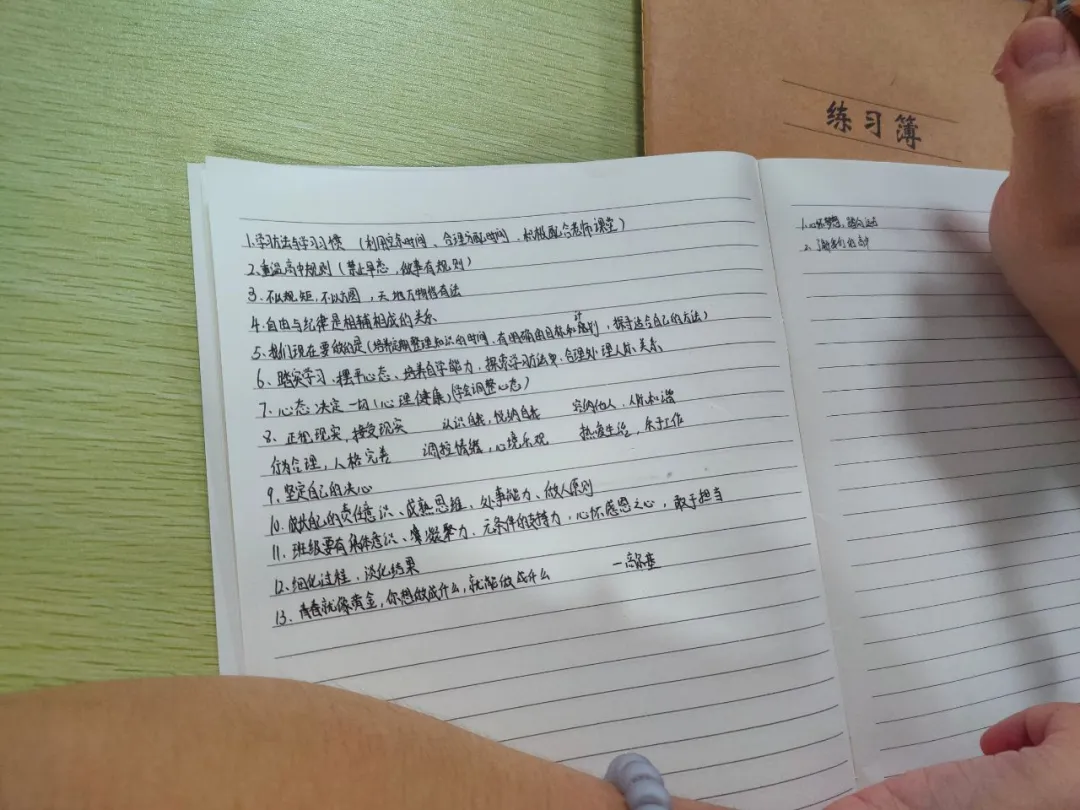 练习簿
1.学习方法与学习习惯 (利用空余时间、合理分配时间、积极配合老师课堂)
2.重温高中规则(禁止早恋,做事有规则)
3.不以规矩,不以方圆,天地万物皆有法
4.自由与纪律是相辅相成的关系
5、我们现在要做的是(培养定期整理知识的时间,有明确的目标和计划,探寻适合自己的方法)
6、踏实学习,摆平心态、培养自学能力,探索学习方法中,合理处理人际关系
7、心态决定一切(心理健康)(学会调整心态)
8、正视现实,接受现实 认识自我,悦纳自我 宽纳他人,人际和谐
行为合理,人格完善 调控情绪,心境乐观 热爱生活,乐于工作
9、坚定自己的决心
10、自己的责任意识、成熟思维、处事能力、做人原则
11、班级要有集体意识、凝聚力、无条件的支持力,心怀感恩之心,敢于担当
12、细化过程、淡化结果
13、青春就像黄金,你想做成什么,就能做成什么 一高尔基
1.心怀梦想,
2.